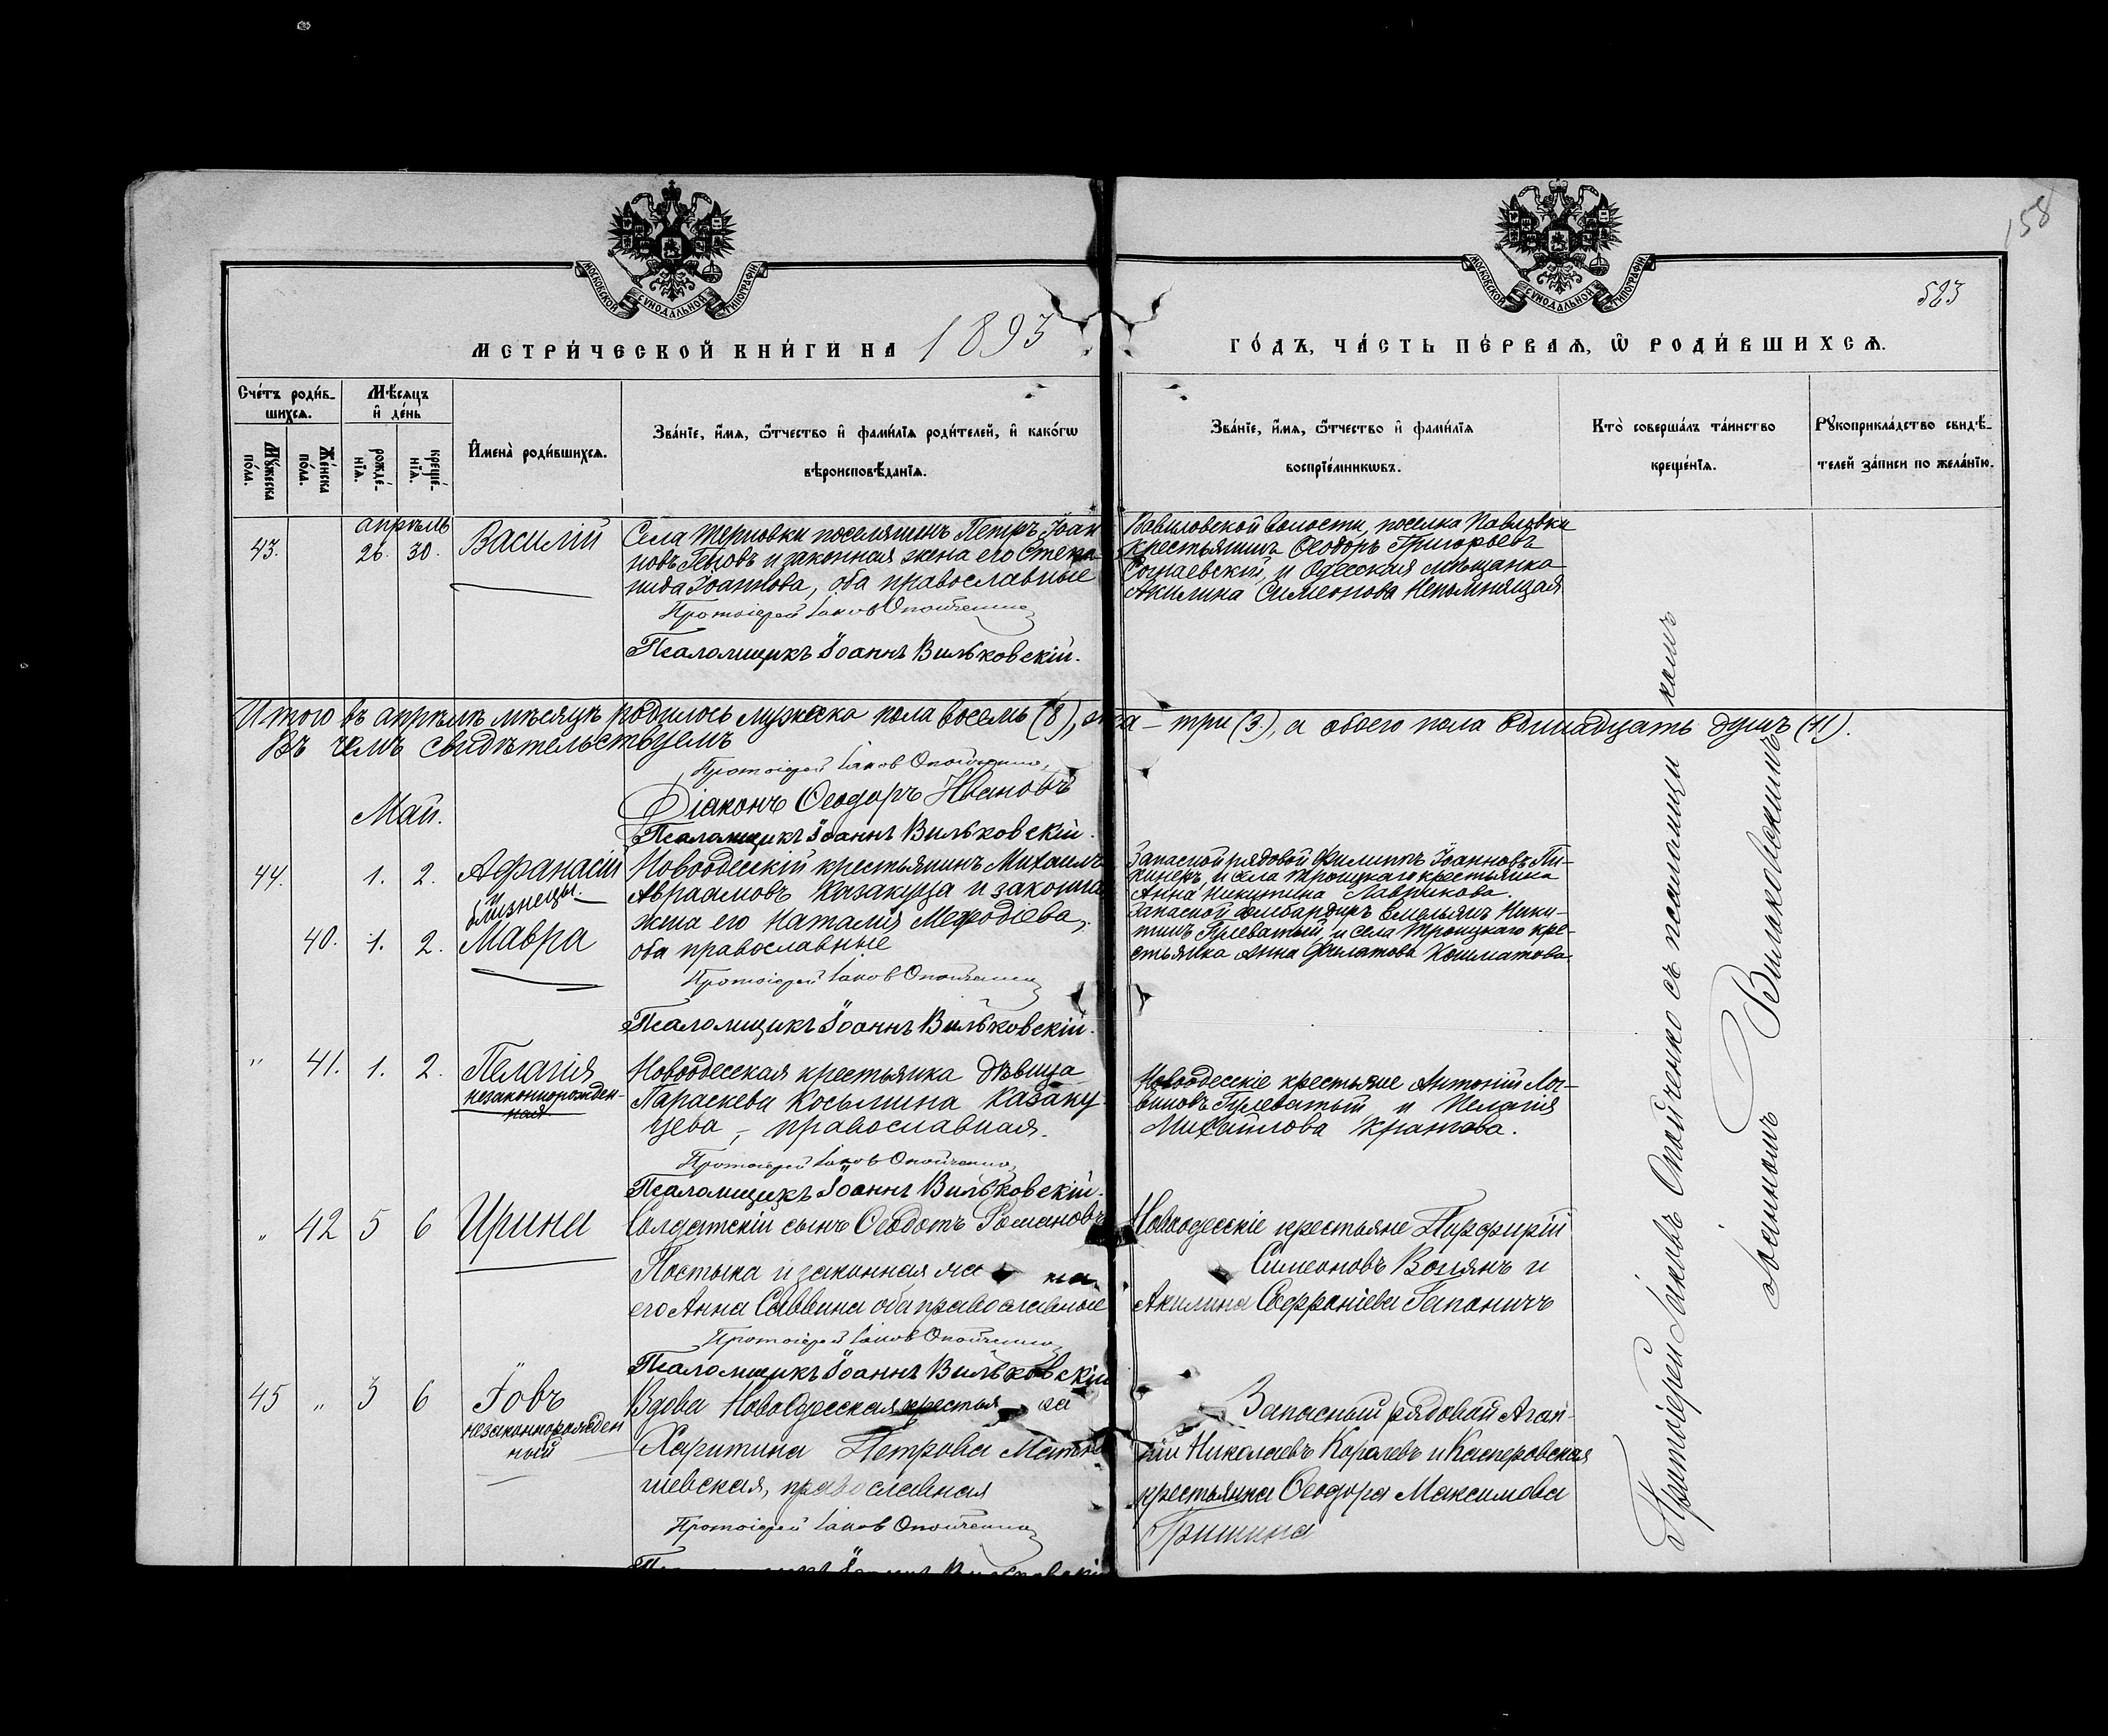 158
523
МОСКОВСКОЙ СѴНОДАЛЬНОЙ ТИПОГРАФІИ
МОСКОВСКОЙ СѴНОДАЛЬНОЙ ТИПОГРАФІИ
МЕТРИ́ЧЕСКОЙ КНИ́ГИ НА 1893
ГО́ДЪ, ЧА́СТЬ ПЕ́РВАѦ, Ѡ҆ РОДИ́ВШИХСѦ.
Сче́тъ роди́в-
шихсѧ.
Мѣ́сяцъ
и҆ де́нь
Мꙋ́жеска
по́ла.
Же́нска
по́ла.
рожде́-
нїѧ.
креще́-
нїѧ.
И҆мена̀ роди́вшихсѧ.
Зва́нїе, и҆́мѧ, ѻ҆́тчество и҆ фами́лїѧ роди́телей, и҆ како́гѡ
вѣроисповѣ́данїѧ.
Зва́нїе, и҆́мѧ, ѻ҆́тчество и҆ фами́лїѧ
воспрїе́мникѡвъ.
Кто̀ соверша́лъ та́инство
креще́нїѧ.
Рꙋкоприкла́дство свидѣ́-
телей за́писи по жела́нїю.
апрѣль
43. 26. 30. Василій
Села Терновки поселянинъ Петръ Іоан
новъ Геновъ и законная жена его Стефа
нида Іоаннова, оба православные
Протоіерей Іаковъ Опойченко
Псаломщикъ Іоаннъ Вильковскій.
Вавиловской волости, поселка Павловки
крестьянинъ Ѳеодоръ Григорьевъ
и Одесская мѣщанка
Акилина Симеонова Непомнящая
Итого въ апрѣлѣ мѣсяцѣ родилось мужеска пола восемь (8), – три (3), а обоего пола одиннадцать душъ (11).
Въ чемъ свидѣтельствуемъ
Протоіерей Іаковъ Опойченко
Діаконъ Ѳеодоръ Ивановъ
Псаломщикъ Іоаннъ Вильковскій.
Май.
44. 1. 2. Афанасій
и
близнецы.
40. 1. 2. Мавра
Новоодесскій крестьянинъ Михаилъ
Авраамовъ Казакуца и законная
жена его Наталія Меѳодіева,
оба православные
Протоіерей Іаковъ Опойченко
Псаломщикъ Іоаннъ Вильковскій.
Запасной рядовой Филиппъ Іоанновъ Пи-
кинеръ и села Троицкаго крестьянка
Анна Никитина Лаврикова.
Запасной бомбардиръ Емельянъ Ники-
тинъ Гулеватый, и села Троицкаго кре-
стьянка Анна Филатова Кошматова.
" 41. 1. 2. Пелагія
незаконнорожден-
ная
Новоодесская крестьянка дѣвица
Параскева Косьмина Казаку-
цева, – православная.
Протоіерей Іаковъ Опойченко
Псаломщикъ Іоаннъ Вильковскій.
Новоодесскіе крестьяне Антоній Лог-
виновъ Гулеватый и Пелагія
Михайлова
" 42 5 6 Ирина
Солдатскій сынъ Ѳеодотъ Романовъ
Постыка и законная
его Анна Саввина оба православные
Протоіерей Іаковъ Опойченко
Псаломщикъ Іоаннъ Вильковскій
Новоодесскіе крестьяне Порфирій
Симеоновъ Волянъ и
Акилина Софроніева Гапоничъ
45 " 3 6 Іовъ
незаконнорожден
ный
Вдова Новоодесская крестья
Харитина Петрова
шевская, православная
Протоіерей Іаковъ Опойченко
Псаломщикъ Іоаннъ Вильковскій
Запасный рядовой Агап-
ній Николаевъ и Касперовская
крестьянка Ѳеодора Максимова
Гришина
Протоіерей Іаковъ Опойченко съ псаломщикомъ
Іоанномъ Вильковскимъ